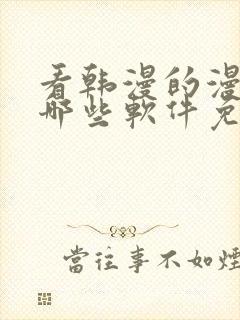 看韩漫的漫
哪些軟件免
當往事不如煙